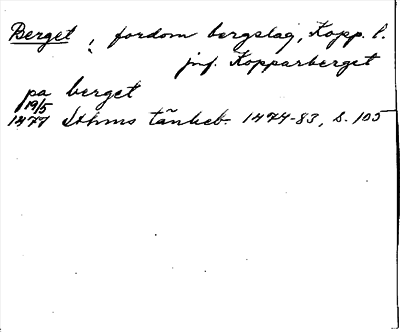 Berget, fordom bergslag, Kopp. l.
jnf. Kopparberget
pa berget
19/5
1477 Sthms tänkeb. 1474-83, s. 105